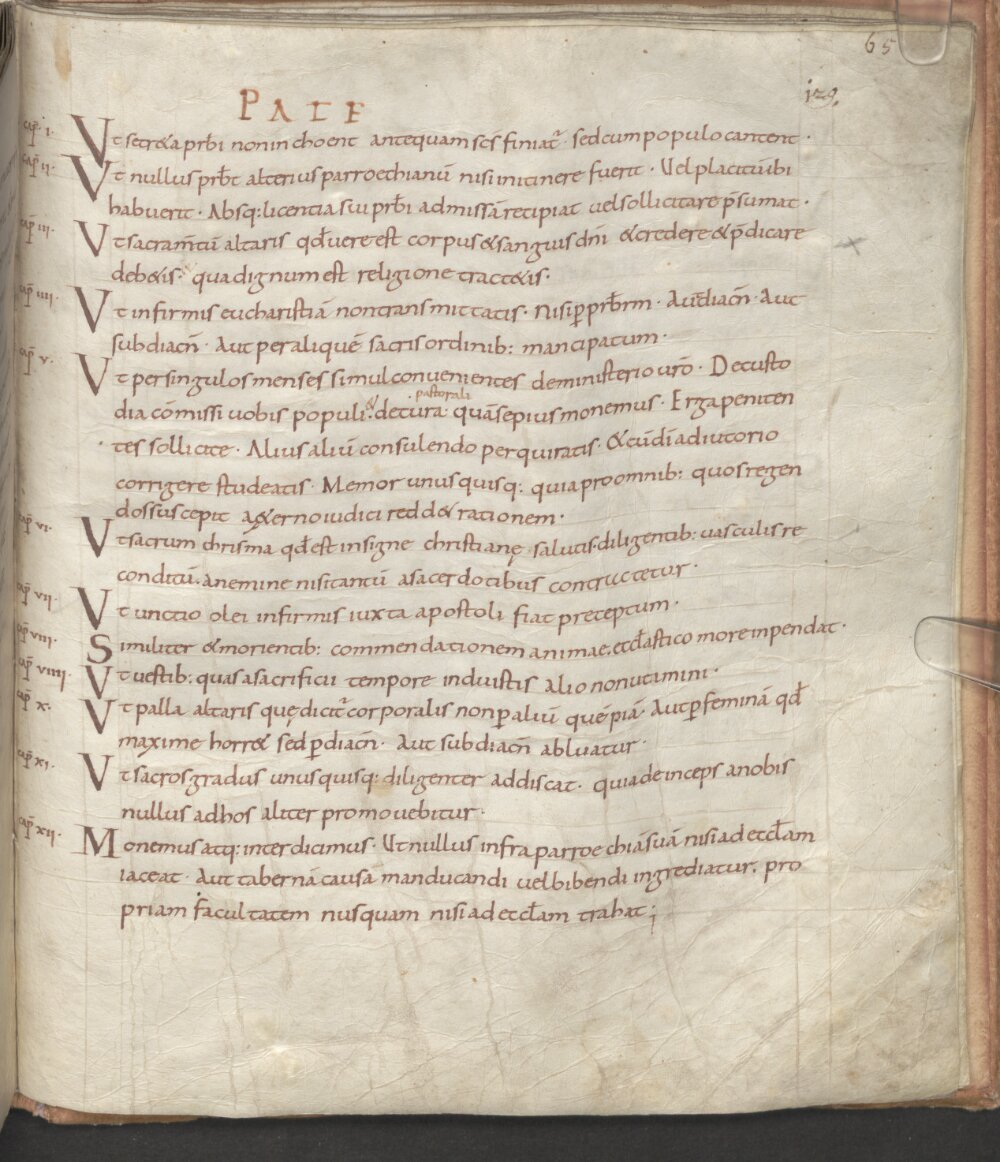 65
129.
PATF
cap̄ i. Ut secreta prb̄i non inchoent antequam sc̄s finiat᷑. sed cum populo cantent.
cap̄ ii. Ut nullus prb̄t alterius parroechianū nisi in itinere fuerit. Vel placitū ibi
habuerit. Absq; licentia sui prb̄i ad missā recipiat vel sollicitare p̄sumat.
cap̄ iii. Ut sacram̄tū altaris qđ vere est corpus & sanguis dn̄i & credere & p̄dicare
deb&is. qua dignum est religione tract&is.
cap̄ iiii. Ut infirmis eucharistiā non transmittatis. Nisi ꝑ prb̄rm. Aut diacn̄. Aut
subdiacn̄. Aut per aliquē sacris ordinib; mancipatum.
cap̄ v. Ut per singulos menses simul convenientes de ministerio vr̄o. De custo
dia cōmissi vobis populi. & de cura pastorali quā sepius monemus. Erga peniten
tes sollicite. Alius aliū consulendo perquiratis. & cū dī adiutorio
corrigere studeatis. Memor unusquisq; quia pro omnib; quos regen
dos suscepit a&erno iudici redd& rationem.
cap̄ vi. Ut sacrum chrisma qđ est insigne christianę salutis diligentib; vasculis re
conditū. a nemine nisi tantū a sacerdotibus contructetur.
cap̄ vii. Ut unctio olei infirmis iuxta apostoli fiat preceptum.
cap̄ viii. Similiter & morientib; commendationem animae. eccl̄astico more inpendat.
cap̄ viiii. Ut vestib; quas a sacrificii tempore induistis alio non utamini.
cap̄ x. Ut palla altaris quę dicit᷑ corporalis non ꝑ aliū quēpiā. Aut ꝑ feminā qđ
maxime horr& sed ꝑ diacn̄. Aut subdiacn̄ abluatur.
cap̄ xi. Ut sacros gradus unusquisq; diligenter addiscat. quia deinceps a nobis
nullus ad hos aliter promovebitur.
cap̄ xii. Monemus atq; interdicimus. Ut nullus infra parroechiā suā nisi ad eccl̄am
iaceat. Aut tabernā causa manducandi vel bibendi ingrediatur. pro
priam facultatem nusquam nisi ad eccl̄am trahat;